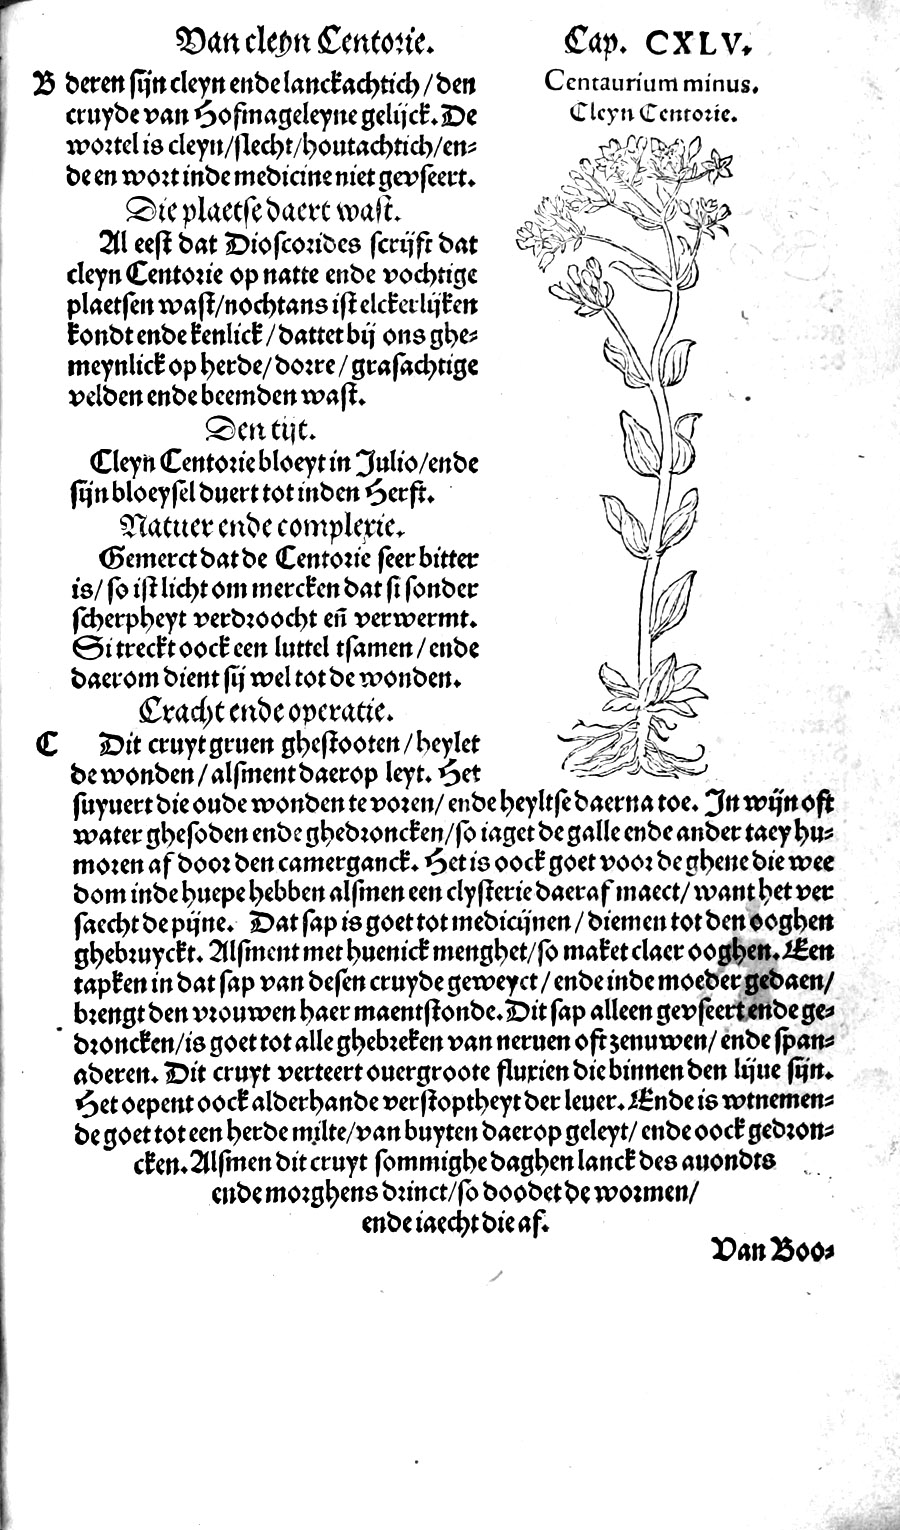 Van cleyn Centorie. Cap. CXLV.
B deren sijn cleyn ende lanckachtich / den
cruyde van Hofmageleyne gelijck. De
wortel is cleyn/slecht/houtachtich/en⸗
de en wort inde medicine niet gevseert.
Die plaetse daert wast.
Al eest dat Dioscorides scrijft dat
cleyn Centorie op natte ende vochtige
plaetsen wast/nochtans ist elckerlijken
kondt ende kenlick / dattet bij ons ghe⸗
meynlick op herde/ dorre / grasachtige
velden ende beemden wast.
Den tijt.
Cleyn Centorie bloeyt in Julio/ende
sijn bloeysel duert tot inden Herfst.
Natuer ende complexie.
Gemerct dat de Centorie seer bitter
is/ so ist licht om mercken dat si sonder
scherpheyt verdroocht eñ verwermt.
Si treckt oock een luttel tsamen / ende
daerom dient sij wel tot de wonden.
Cracht ende operatie.
C Dit cruyt gruen ghestooten / heylet
de wonden / alsment daerop leyt. Het
Centaurium minus.
Cleyn Centorie.
suyuert die oude wonden te voren/ ende heyltse daerna toe. In wijn oft
water ghesoden ende ghedroncken/so iaget de galle ende ander taey hu⸗
moren af door den camerganck. Het is oock goet voor de ghene die wee
dom inde huepe hebben alsmen een clysterie daer af maect/ want het ver
saecht de pijne. Dat sap is goet tot medicijnen / diemen tot den ooghen
ghebruyckt. Alsment met huenick menghet/so maket claer ooghen. Een
tapken in dat sap van desen cruyde geweyct / ende inde moeder gedaen/
brengt den vrouwen haer maentstonde. Dit sap alleen gevseert ende ge⸗
droncken/is goet tot alle ghebreken van neruen oft zenuwen/ ende span⸗
aderen. Dit cruyt verteert ouergroote fluxien die binnen den lijue sijn.
Het oepent oock alderhande verstoptheyt der leuer. Ende is wtnemen⸗
de goet tot een herde milte/van buyten daerop geleyt/ ende oock gedron⸗
cken. Alsmen dit cruyt sommighe daghen lanck des auondts
ende morghens drinct/so doodet de wormen/
ende iaecht die af.
Van Boo⸗